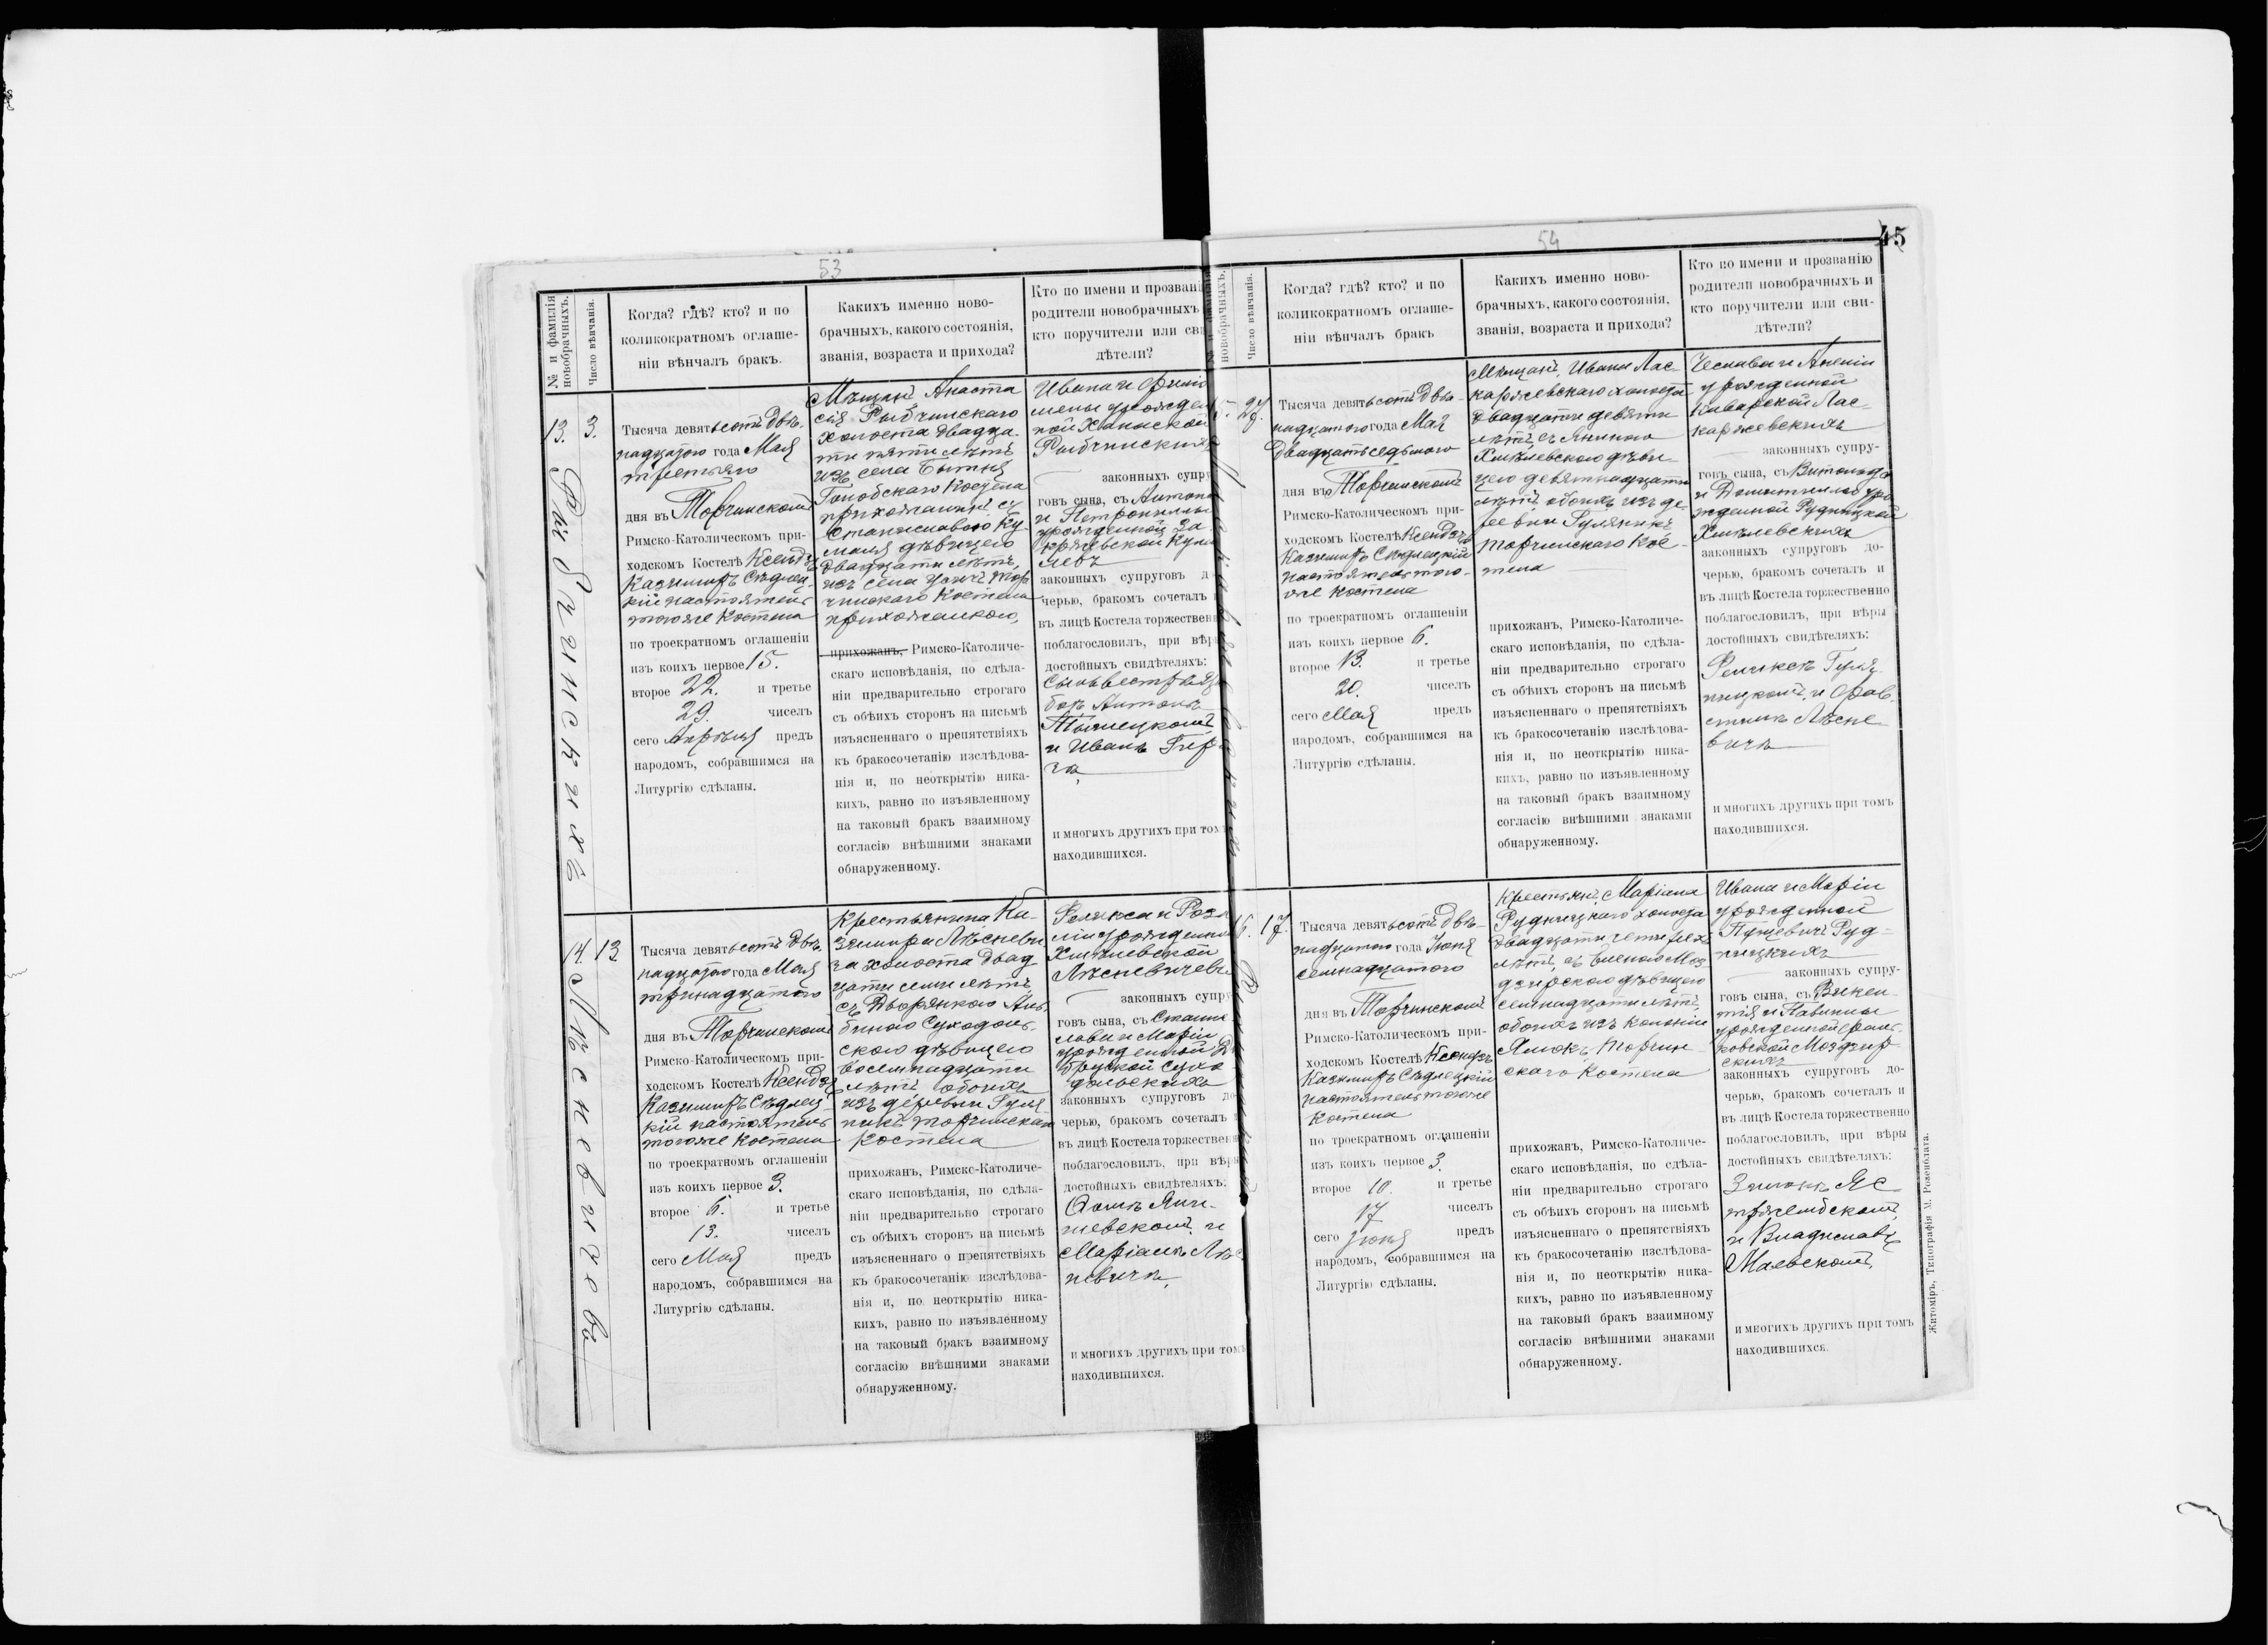 53
№ и фамилія
новобрачныхъ.
Число вѣнчанія.
Когда? гдѣ? кто? и по
коликократномъ оглаше-
ніи вѣнчалъ бракъ.
Какихъ именно ново-
брачныхъ, какого состоянія,
званія, возраста и прихода?
Кто по имени и прозвані
родители новобрачныхъ
кто поручители или сви
дѣтели?
13.
3.
Рыбчинскихъ
Тысяча девятьсотъ двѣ-
надцатого года Мая
третьяго
дня въ Торчинскомъ
Римско-Католическомъ при-
ходскомъ Костелѣ Ксендзъ
Казимиръ Сѣдлец-
кій настоятель
тогоже Костела
по троекратномъ оглашеніи
изъ коихъ первое 15.
второе 22. и третье
29. чиселъ
сего Апрѣля предъ
народомъ, собравшимся на
Литургію сдѣланы.
Мѣщан. Анаста
сія Рыбчинскаго
холоста двадца-
ти пяти лѣтъ
изъ села
Костела
съ
Станиславою Ку-
дѣвицею
двадцати лѣтъ,
изъ села Тор
чинскаго Костела
прихожанкою,
прихожанъ, Римско-Католиче-
скаго исповѣданія, по сдѣла-
ніи предварительно строгаго
съ обѣихъ сторонъ на письмѣ
изъясненнаго о препятствіяхъ
къ бракосочетанію изслѣдова-
нія и, по неоткрытію ника-
кихъ, равно по изъявленному
на таковый бракъ взаимному
согласію внѣшними знаками
обнаруженному.
Ивана и Фило
мены урожден
ной
Рыбчинскихъ
законныхъ супру
говъ сына, съ Антона
и Петронеллы
урожденной За
кржевской
законныхъ супруговъ д
черью, бракомъ сочеталъ
въ лицѣ Костела торжествен
поблагословилъ, при вѣр
достойныхъ свидѣтеляхъ:
Антонъ
и Иванъ
и многихъ другихъ при том
находившихся.
14.
13.
Лѣсневичевъ
Тысяча девятьсотъ двѣ
надцатого года Мая
тринадцатого
дня въ Торчинскомъ
Римско-Католическомъ при-
ходскомъ Костелѣ Ксендзъ
Казимиръ Сѣдлец-
кій настоятель
тогоже Костела
по троекратномъ оглашеніи
изъ коихъ первое 3.
второе 6. и третье
13. чиселъ
сего Мая предъ
народомъ, собравшимся на
Литургію сдѣланы.
Крестьянина Ка-
зимира Лѣсневи
ча холоста двад
цати семи лѣтъ,
съ Дворянкою Аль
биною Суходоль-
скою дѣвицею
восемнадцати
лѣтъ обоихъ
изъ деревни Гуля
никъ Торчинскаго
Костела
прихожанъ, Римско-Католиче-
скаго исповѣданія, по сдѣла-
ніи предварительно строгаго
съ обѣихъ сторонъ на письмѣ
изъясненнаго о препятствіяхъ
къ бракосочетанію изслѣдова-
нія и, по неоткрытію ника-
кихъ, равно по изъявленному
на таковый бракъ взаимному
согласію внѣшними знаками
обнаруженному.
Феликса и Роза
ліи урожденной
Хмѣлевской
Лѣсневичевъ
законныхъ супру
говъ сына, съ Стани
слава и Маріи
урожденной
Сухо
дольскихъ
законныхъ супруговъ до
черью, бракомъ сочеталъ
въ лицѣ Костела торжествен
поблагословилъ, при вѣры
достойныхъ свидѣтеляхъ:
и
Маріанъ Лѣс
невичъ,
и многихъ другихъ при том
находившихся.
54
45
новобрачныхъ.
Число вѣнчанія.
Когда? гдѣ? кто? и по
коликократномъ оглаше-
ніи вѣнчалъ бракъ
Какихъ именно ново-
брачныхъ, какого состоянія,
званія, возраста и прихода?
Кто по имени и прозванію
родители новобрачныхъ и
кто поручители или сви-
дѣтели?
15.
27.
Тысяча девятьсотъ двѣ-
надцатого года Мая
двадцатьседьмого
дня въ Торчинскомъ
Римско-Католическомъ при-
ходскомъ Костелѣ Ксендзъ
Казимиръ Сѣдлецкій
настоятель того-
же Костела
по троекратномъ оглашеніи
изъ коихъ первое 6.
второе 13. и третье
20. чиселъ
сего Мая предъ
народомъ, собравшимся на
Литургію сдѣланы.
Мѣщан. Ивана Лас-
каржевскаго холоста
двадцати девяти
лѣтъ, съ Яниною
Хмѣлевскою дѣви-
цею девятнадцати
лѣтъ обоихъ изъ де-
ревни Гуляникъ
Торчинскаго Кос-
тела
прихожанъ, Римско-Католиче-
скаго исповѣданія, по сдѣла-
ніи предварительно строгаго
съ обѣихъ сторонъ на письмѣ
изъясненнаго о препятствіяхъ
къ бракосочетанію изслѣдова-
нія и, по неоткрытію ника-
кихъ, равно по изъявленному
на таковый бракъ взаимному
согласію внѣшними знаками
обнаруженному.
Чеслава и
урожденной
Лас-
каржевскихъ
законныхъ супру-
говъ сына, съ Витольда
и уро
жденной Рудницкой
Хмѣлевскихъ
законныхъ супруговъ до-
черью, бракомъ сочеталъ и
въ лицѣ Костела торжественно
поблагословилъ, при вѣры
достойныхъ свидѣтеляхъ:
и
Лѣсне
вичъ
и многихъ другихъ при томъ
находившихся.
16.
17.
Тысяча девятьсотъ двѣ-
надцатого года Іюня
семнадцатого
дня въ Торчинскомъ
Римско-Католическомъ при-
ходскомъ Костелѣ Ксендзъ
Казимиръ Сѣдлецкій
настоятель тогоже
Костела
по троекратномъ оглашеніи
изъ коихъ первое 3.
второе 10. и третье
17 чиселъ
сего Іюня предъ
народомъ, собравшимся на
Литургію сдѣланы.
Крестьян. Маріана
Рудницкаго холоста
двадцати четырехъ
лѣтъ, съ Еленою Моз
дзирскою дѣвицею
семнадцати лѣтъ,
обоихъ изъ колоніи
Торчин-
скаго Костела
прихожанъ, Римско-Католиче-
скаго исповѣданія, по сдѣла-
ніи предварительно строгаго
съ обѣихъ сторонъ на письмѣ
изъясненнаго о препятствіяхъ
къ бракосочетанію изслѣдова-
нія и, по неоткрытію ника-
кихъ, равно по изъявленному
на таковый бракъ взаимному
согласію внѣшними знаками
обнаруженному.
Ивана и Маріи
урожденной
Руд-
ницкихъ
законныхъ супру-
говъ сына, съ Викен
тія и Павлины
урожденной
Моздзир
скихъ
законныхъ супруговъ до-
черью, бракомъ сочеталъ и
въ лицѣ Костела торжественно
поблагословилъ, при вѣры
достойныхъ свидѣтеляхъ:
Яс
тржембскомъ,
и Владиславѣ
Маевскомъ,
и многихъ другихъ при томъ
находившихся.
Житоміръ, Типографія М. Розенблата.